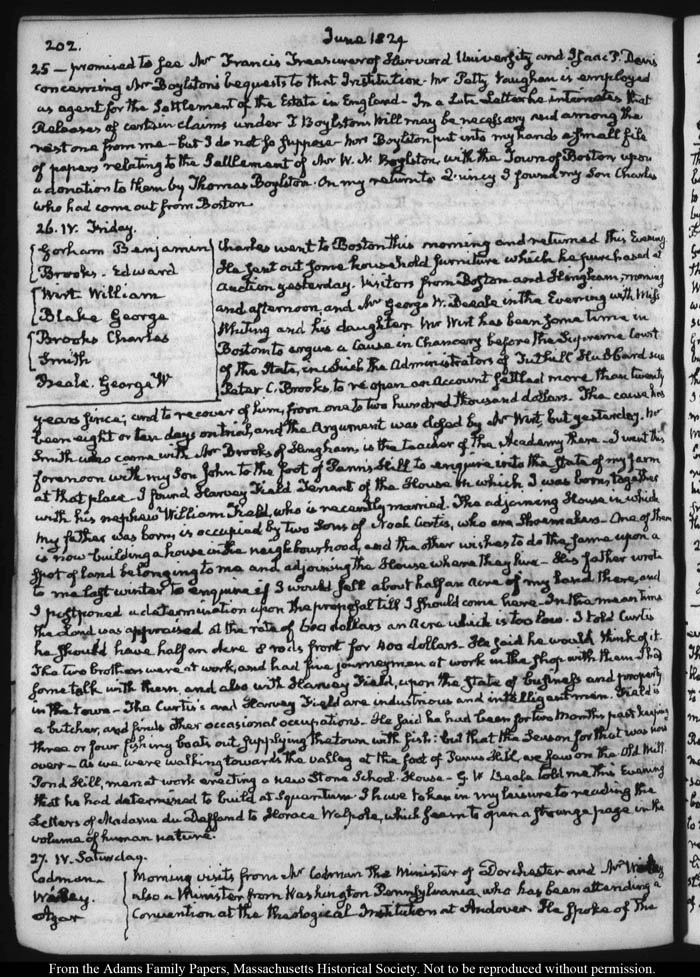 202.
June 1829
25 — promised to see Mr Francis Treasurer of Harvard University and Isaac P. Davis
concerning Mr Boylston's bequests to that Institution. Mr Petty Vaughan is employed
as agent for the Settlement of the Estate in England — In a late Letter he intimates that
Releases of certain claims under T Boylston's Will may be necessary and among the
rest one from me — but I do not so suppose. Mrs Boylston put into my hands a small file
of papers relating to the Settlement of Mr W. N. Boylston, with the Town of Boston upon
a donation to them by Thomas Boylston. On my return to Quincy I found my Son Charles
who had come out from Boston
26. IV. Friday.
Gorham Benjamin
Brooks. Edward
Wirt William
Blake George
Brooks Charles
Smith
Beale. George W
Charles went to Boston this morning and returned this Evening
He sent out some household furniture which he purchased at
auction yesterday. Visitors from Boston and Hingham, morning
and afternoon, and Mr George W. Beale in the Evening with Miss
Whiting and his daughter. Mr Wirt has been some time in
Boston to argue a Cause in Chancery before the Supreme Court
of the State, in which the Administrators of Tuthill Hubbard sue
Peter C. Brooks, to re open an Account settled more than twenty
years since; and to recover of him, from one to two hundred thousand dollars. The cause has
been eight or ten days on trial, and the Argument was closed by Mr Wirt, but yesterday. Mr
Smith who came with Mr Brooks of Hingham, is the teacher of the Academy there — I went this
forenoon with my Son John to the foot of Penn's Hill to enquire into the state of my farm
at that place. I found Harvey Field Tenant of the House in which I was born, together
with his nephew William Field, who is recently married. The adjoining House in which
my father was born is occupied by two Sons of Noah Curtis, who are Shoemakers — One of them
is now building a house in the neighbourhood, and the other wishes to do the same upon a
spot of land belonging to me and adjoining the House where they live — His father wrote
to me last winter to enquire if I would sell about half an Acre of my land there, and
I postponed a determination upon the proposal till I should come here — In the mean time
the land was appraised at the rate of 600 dollars an Acre which is too low. I told Curtis
he should have half an Acre 8 rods front for 400 dollars — He said he would think of it.
The two brothers were at work, and had five journeymen at work in the shop with them. I had
some talk with them, and also with Harvey Field, upon the state of business and property
in the town — The Curtis's and Harvey Field are industrious and intelligent men. Field is
a butcher, and finds other occasional occupations — He said he had been for two Months past keeping
three or four fishing boats out supplying the town with fish: but that the Season for that was now
over — As we were walking towards the valley at the foot of Penns Hill, we saw on the Old Mill
Pond Hill, men at work erecting a new Stone School House — G. W Beale told me this Evening
that he had determined to build at Squantum. I have taken in my leisure to reading the
Letters of Madame du Deffand to Horace Walpole, which seem to open a strange page in the
volume of human nature.
27. IV. Saturday.
Codman —
Wesley.
Agar
Morning visits from Mr Codman the Minister of Dorchester and Mr
also a Minister from Washington Pennsylvania who has been attending a
Convention at the theological Institution at Andover. He spoke of the
From the Adams Family Papers, Massachusetts Historical Society. Not to be reproduced without permission.